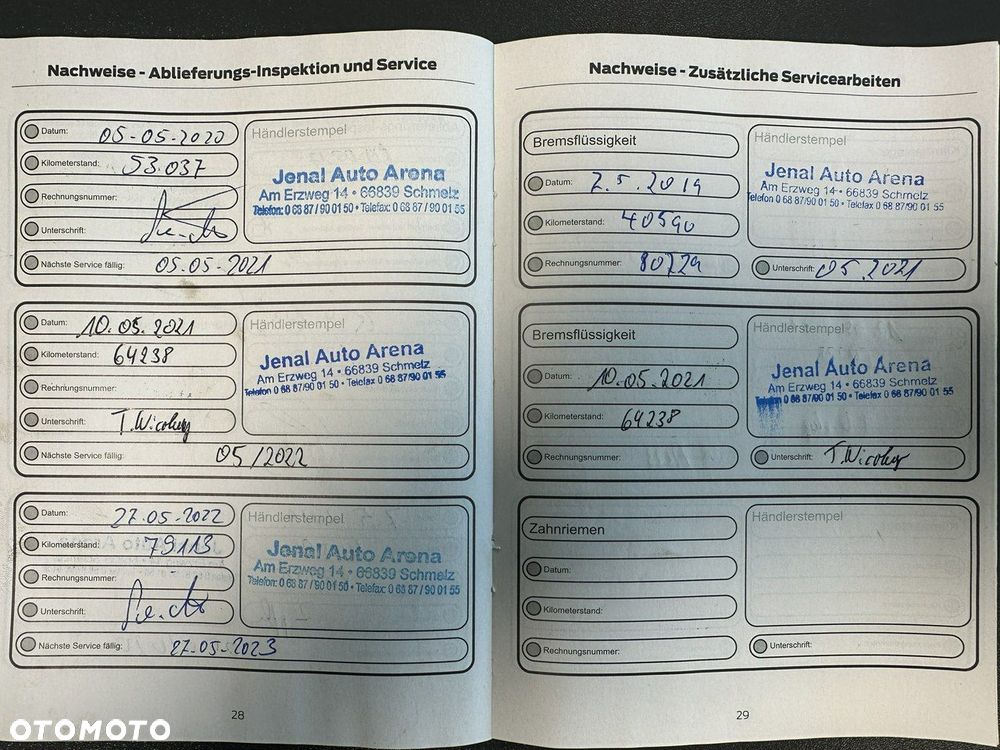 Nachweise - Ablieferungs-Inspektion und Service
Datum: 05-05-2020
Kilometerstand: 53.037
Rechnungsnummer:
Unterschrift:
Nächste Service fällig: 05-05-2021
Händlerstempel
Jenal Auto Arena
Am Erzweg 14 • 66839 Schmelz
Telefon: 0 68 87 / 90 01 50 • Telefax: 0 68 87 / 90 01 55
Datum: 10.05.2021
Kilometerstand: 64238
Rechnungsnummer:
Unterschrift: T.
Nächste Service fällig: 05/2022
Händlerstempel
Jenal Auto Arena
Am Erzweg 14 • 66839 Schmelz
Telefon 0 68 87/90 01 50 • Telefax 0 68 87/90 01 55
Datum: 27.05-2022
Kilometerstand: 79113
Rechnungsnummer:
Unterschrift:
Nächste Service fällig: 27-05-2023
Händlerstempel
Jenal Auto Arena
Am Erzweg 14 • 66839 Schmelz
Telefon: 0 68 87 / 90 01 50 • Telefax: 0 68 87 / 90 01 55
28
Nachweise - Zusätzliche Servicearbeiten
Bremsflüssigkeit
Datum: 2.5.2019
Kilometerstand: 40590
Rechnungsnummer: 80729
Händlerstempel
Jenal Auto Arena
Am Erzweg 14 • 66839 Schmelz
Telefon: 0 68 87/90 01 50 • Telefax: 0 68 87/90 01 55
Unterschrift: 05.2021
Bremsflüssigkeit
Datum: 10.05.2021
Kilometerstand: 64238
Rechnungsnummer:
Händlerstempel
Jenal Auto Arena
Am Erzweg 14 • 66839 Schmelz
Telefon 0 68 87/90 01 50 • Telefax 0 68 87/90 01 55
Unterschrift: T.
Zahnriemen
Datum:
Kilometerstand:
Rechnungsnummer:
Händlerstempel
Unterschrift:
29
OTOMOTO